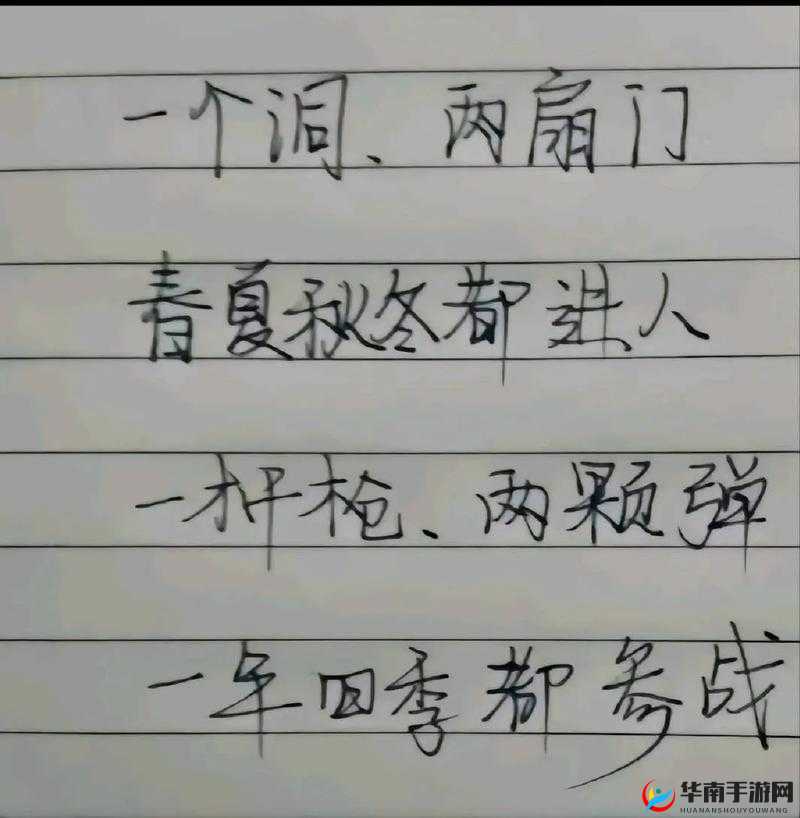 一个洞、两扇门
春夏秋冬都进人
一杆枪、两颗弹
一年四季都参战
华南手游网
HUANANSHOUYOUWANG